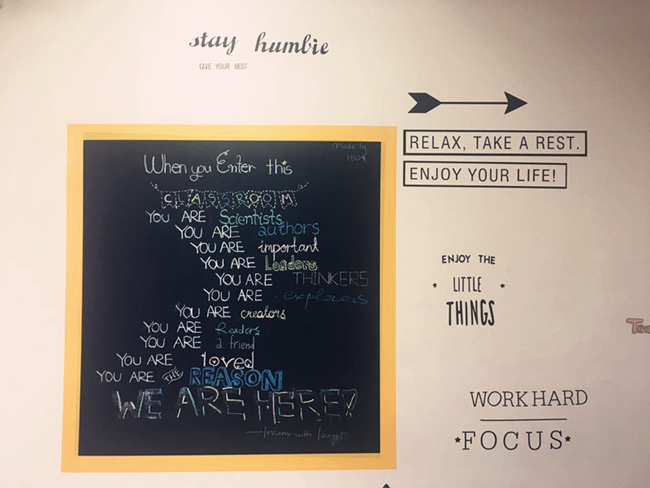 stay humble
GIVE YOUR BEST
RELAX, TAKE A REST.
ENJOY YOUR LIFE!
Made by
1504
When you Enter this
CLASSROOM
YOU ARE Scientists
YOU ARE authors
YOU ARE important
YOU ARE Leaders
YOU ARE THINKERS
YOU ARE explorers
YOU ARE creators
YOU ARE Readers
YOU ARE a friend
YOU ARE loved
YOU ARE THE REASON
WE ARE HERE!
ENJOY THE
LITTLE
THINGS
WORK HARD
FOCUS